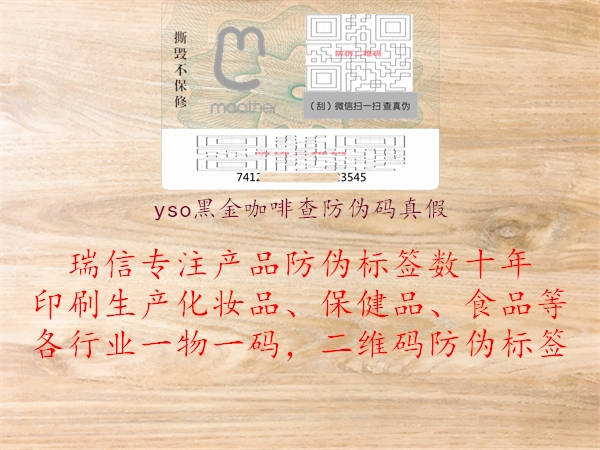 撕毁不保修
maother
防伪二维码
(刮)微信扫一扫 查真伪
7412 3545
yso黑金咖啡查防伪码真假
瑞信专注产品防伪标签数十年
印刷生产化妆品、保健品、食品等
各行业一物一码，二维码防伪标签